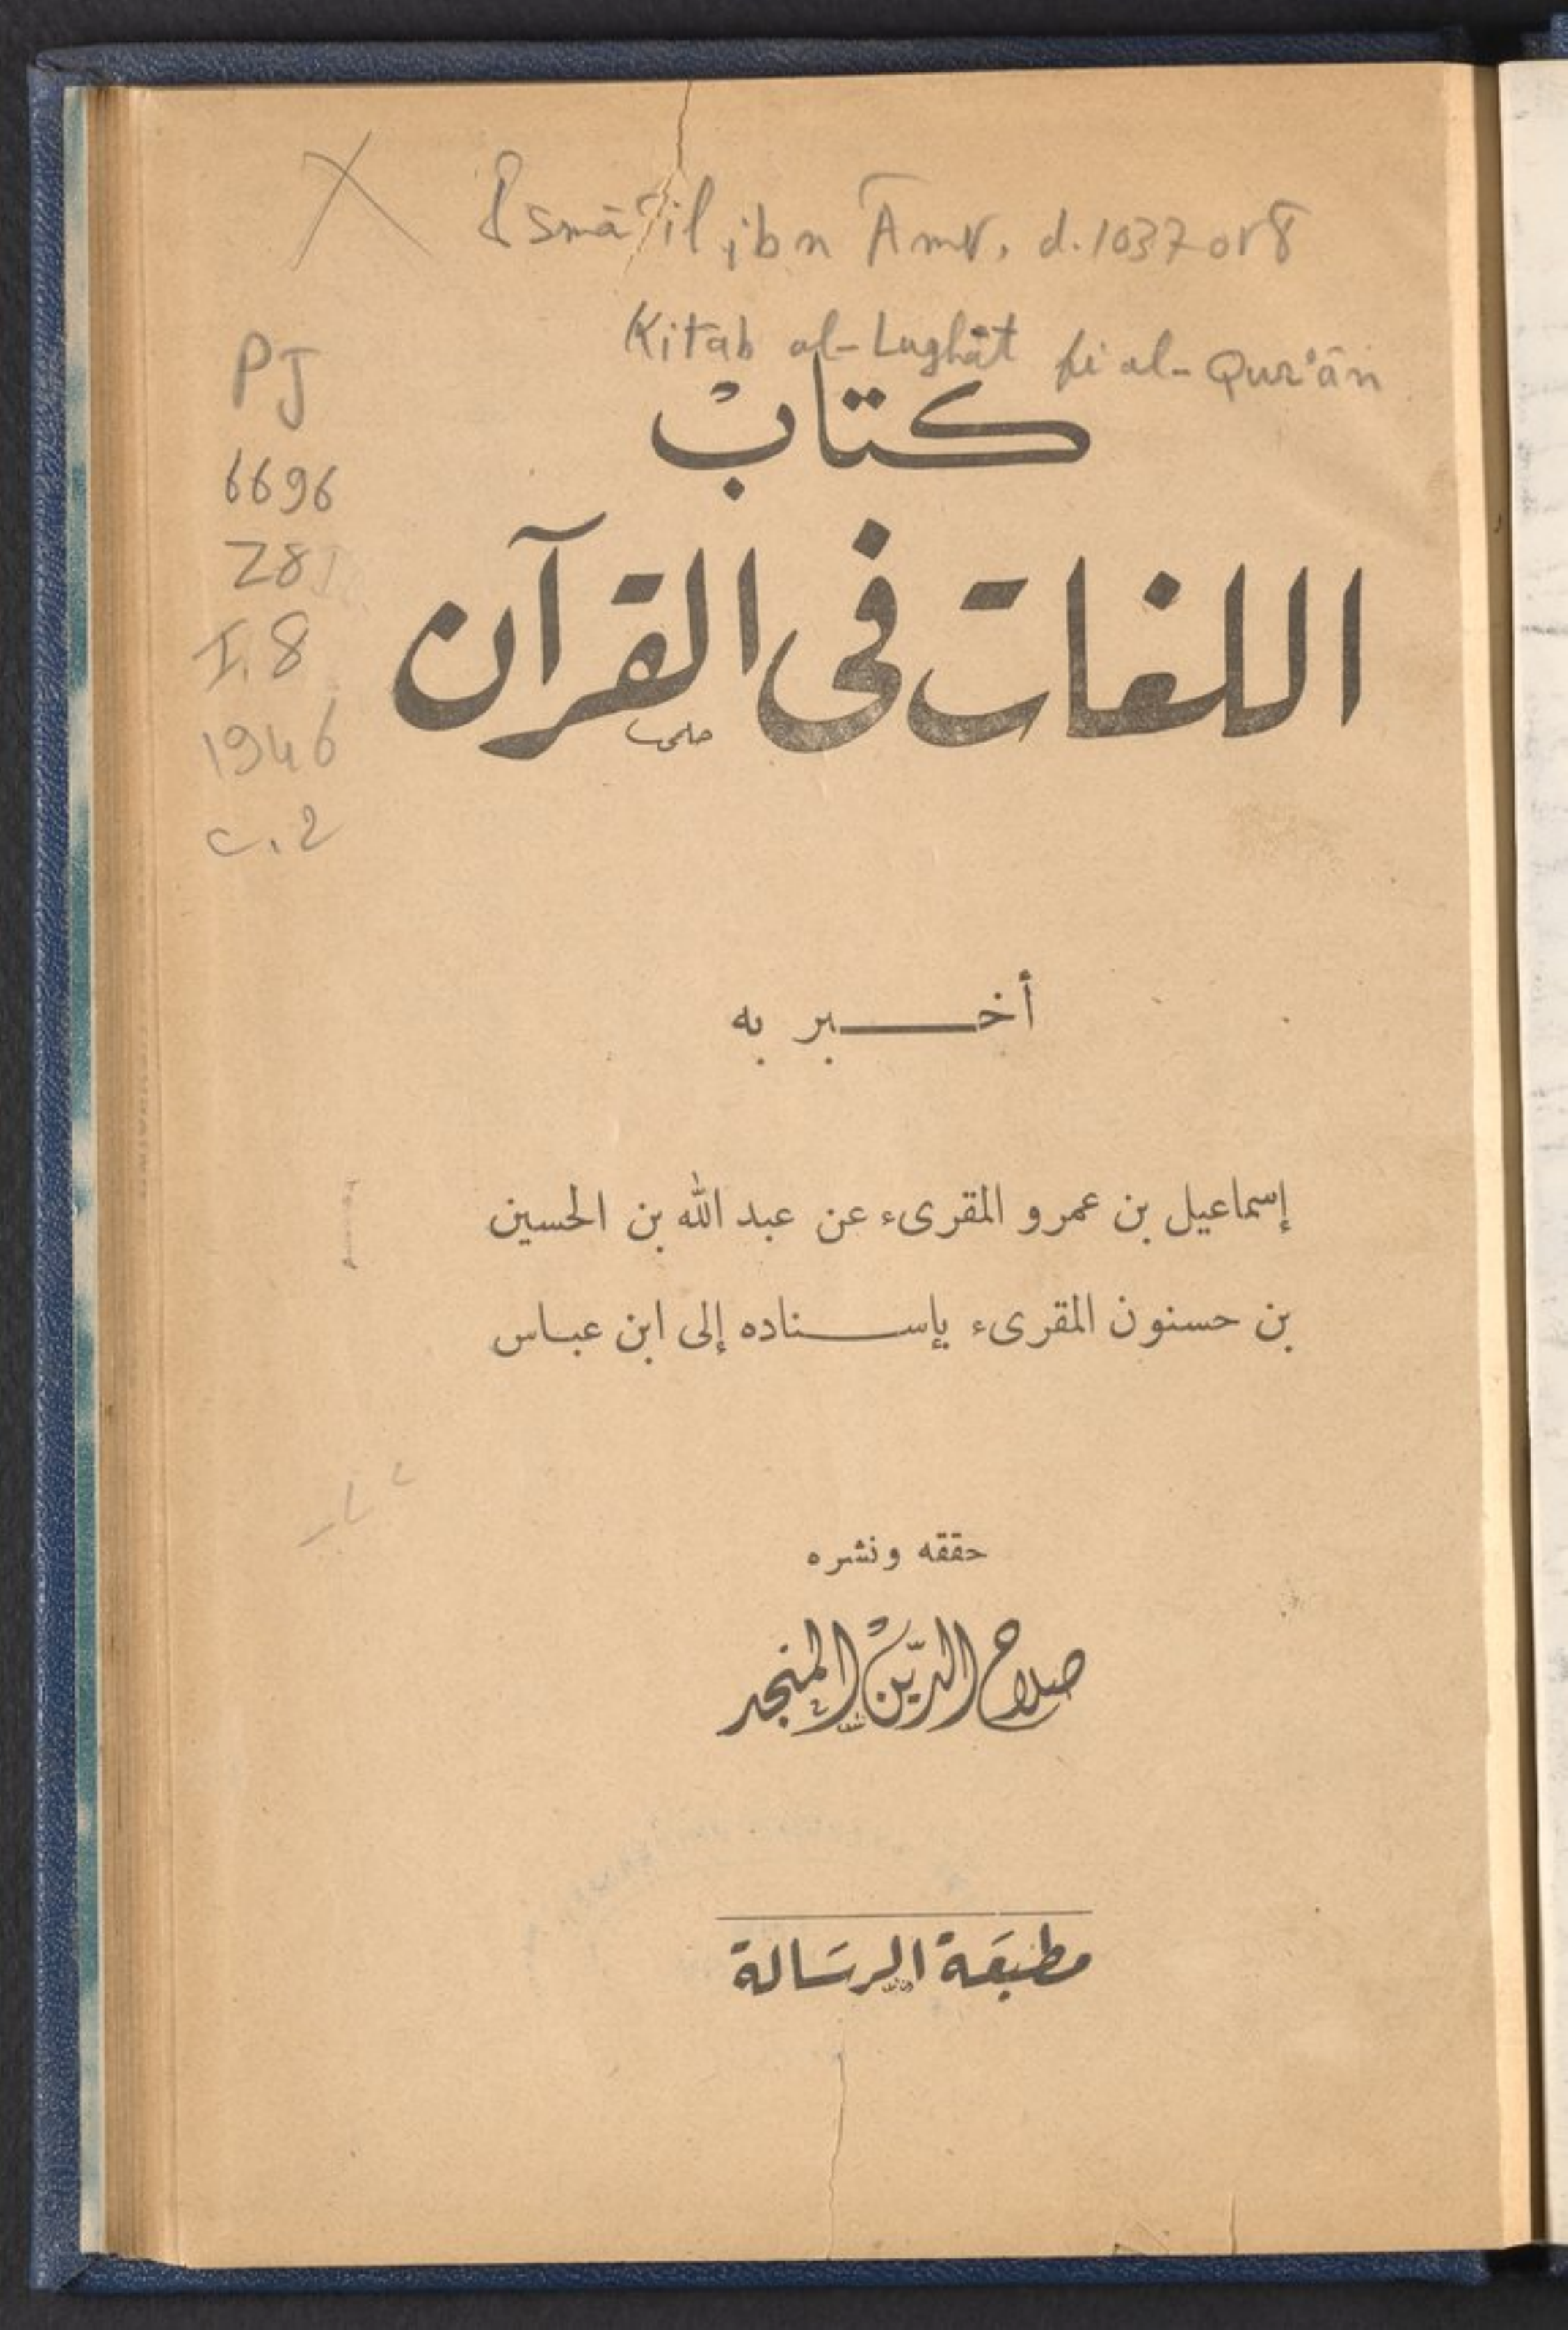 Ismāʿīl ibn Amr, d. 1037 or 8
Kitāb al-Lughāt fi al-Qurʾān
PJ
6696
Z8
I.8
1946
c.2
كتاب
اللغات فى القرآن
أخبر به
إسماعيل بن عمرو المقرىء عن عبد الله بن الحسين
بن حسنون المقرىء بإسناده إلى ابن عباس
حققه ونشره
صلاح الدّين المنجد
مطبعَة الرسَالة